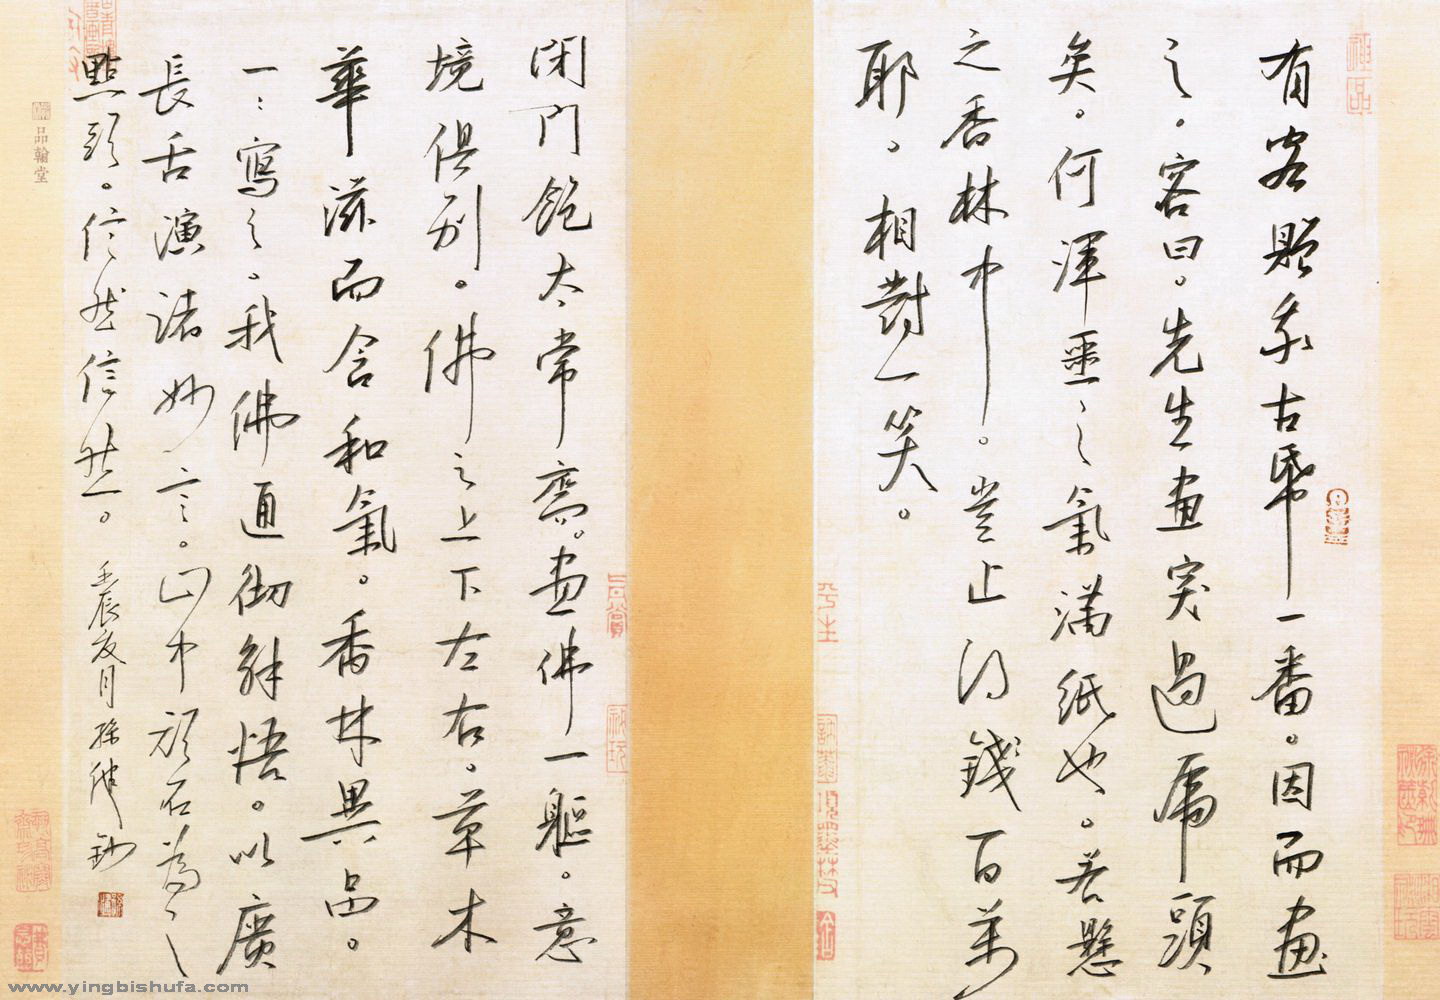 有客贈我古帋一番。因而畫
之。客曰。先生畫突過虎頭
矣。何渾噩之氣滿紙也。若懸
之香林中。豈止得錢百萬
耶。相對一笑。
閉門飽太常齋。畫佛一軀。意
境俱別。佛之上下左右。草木
華滋而含和氣。香林異品。
一〻寫之。我佛通徹解悟。以廣
長舌演諸妙言。山中頑石為之
點頭。信然信然。壬辰夏月孫鈔
品翰堂
www.yingbishufa.com